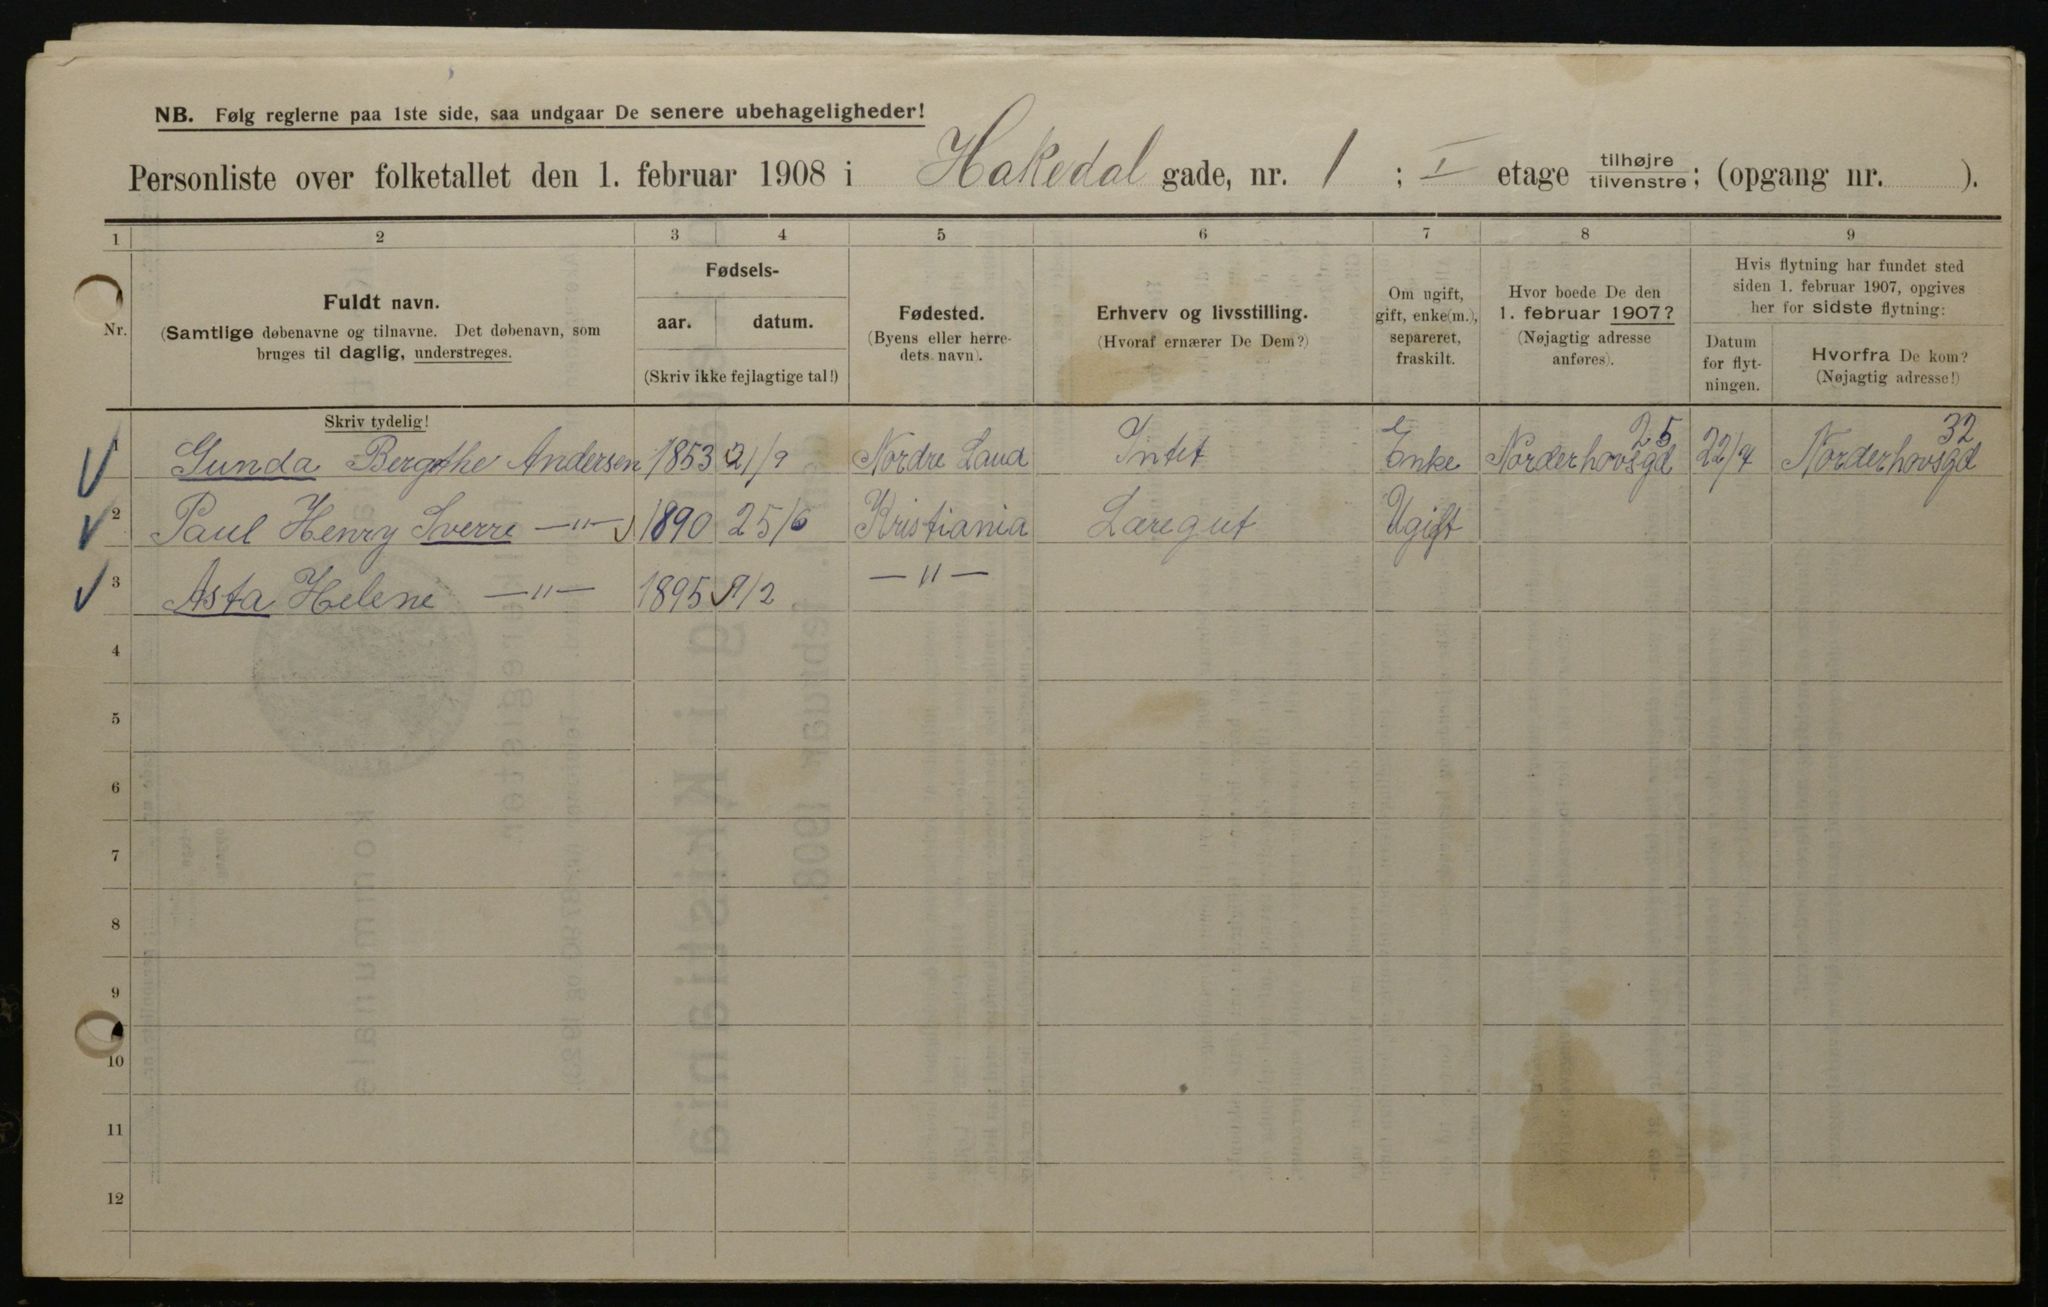 NB. Følg reglerne paa 1ste side, saa undgaar De senere ubehageligheder!
Personliste over folketallet den 1. februar 1908 i Hakedal gade, nr. 1; I etage tilhøjre/tilvenstre; (opgang nr. ).
1 2 3 4 5 6 7 8 9
Nr.
Fuldt navn.
(Samtlige døbenavne og tilnavne. Det døbenavn, som
bruges til daglig, understreges.
Fødsels-
aar. datum.
(Skriv ikke fejlagtige tal!)
Fødested.
(Byens eller herre-
dets navn).
Erhverv og livsstilling.
(Hvoraf ernærer De Dem?)
Om ugift,
gift, enke(m.),
separeret,
fraskilt.
Hvor boede De den
1. februar 1907?
(Nøjagtig adresse
anføres).
Hvis flytning har fundet sted
siden 1. februar 1907, opgives
her for sidste flytning:
Datum
for flyt-
ningen.
Hvorfra De kom?
(Nøjagtig adresse!)
Skriv tydelig!
1 Gunda Bergthe Andersen 1853 21/9 Nordre Land Intet e Enke Norderhovsgd 25 22/4 Norderhovsgd 32
2 Paul Henry Sverre —"— 1890 25/6 Kristiania Læregut Ugift
3 Asta Helene —"— 1895 9/2 —"—
4
5
6
7
8
9
10
11
12